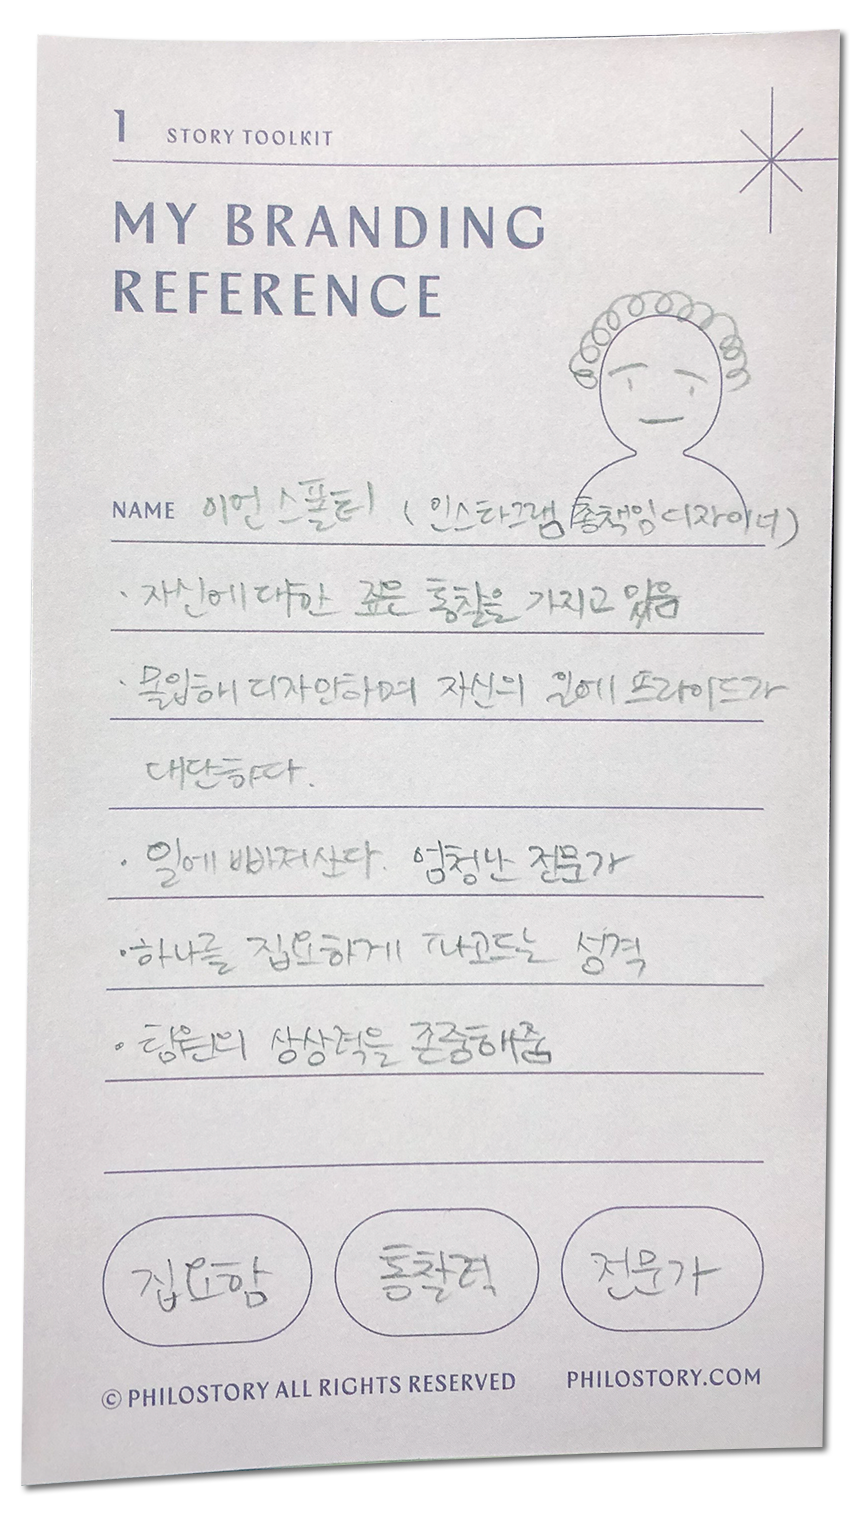 1 STORY TOOLKIT
MY BRANDING
REFERENCE
NAME 이언 스폴터 (인스타그램 총책임 디자이너)
· 자신에 대한 깊은 통찰을 가지고 있음
· 몰입해 디자인하며 자신의 일에 프라이드가
대단하다.
· 일에 빠져산다. 엄청난 전문가
· 하나를 집요하게 파고드는 성격
· 팀원의 상상력을 존중해줌
집요함 통찰력 전문가
© PHILOSTORY ALL RIGHTS RESERVED PHILOSTORY.COM